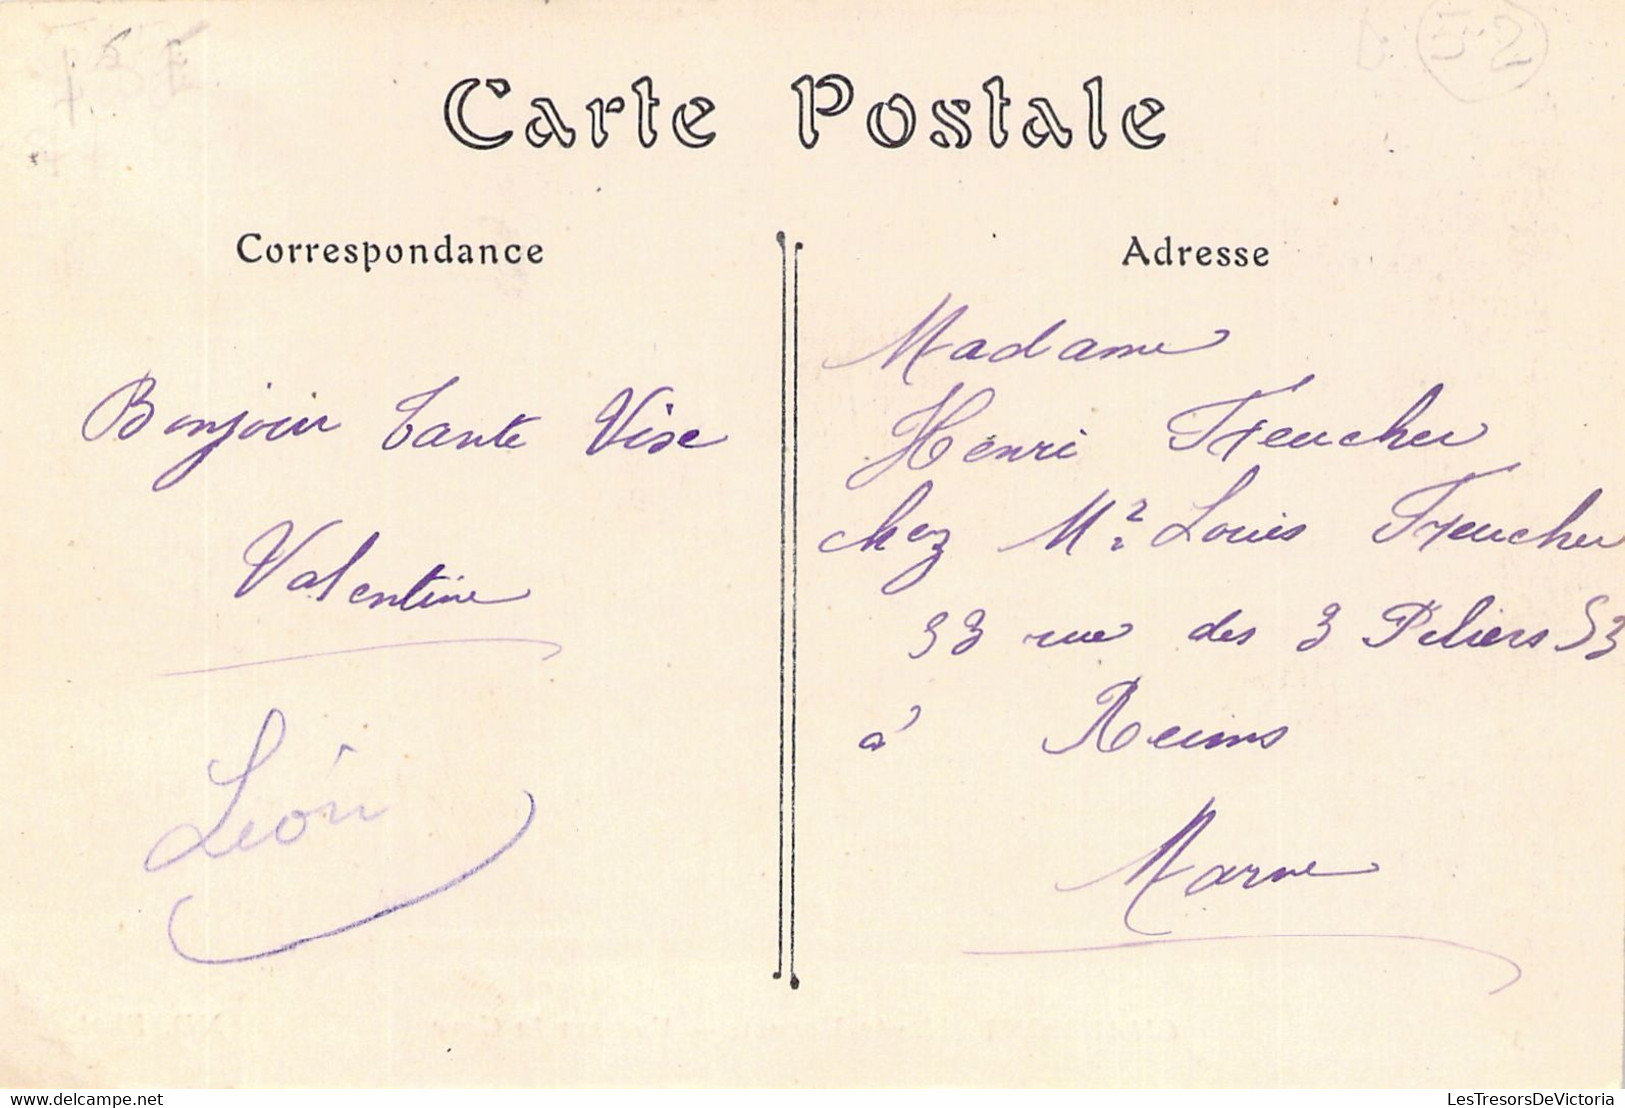 Carte Postale
Correspondance
Bonjour tante Vise
Valentine
Léon
Adresse
Madame
Henri
chez Mr Louis
53 rue des 3 Piliers 53
à Reims
Marne
D. 52
delcampe.net
LesTresorsDeVictoria